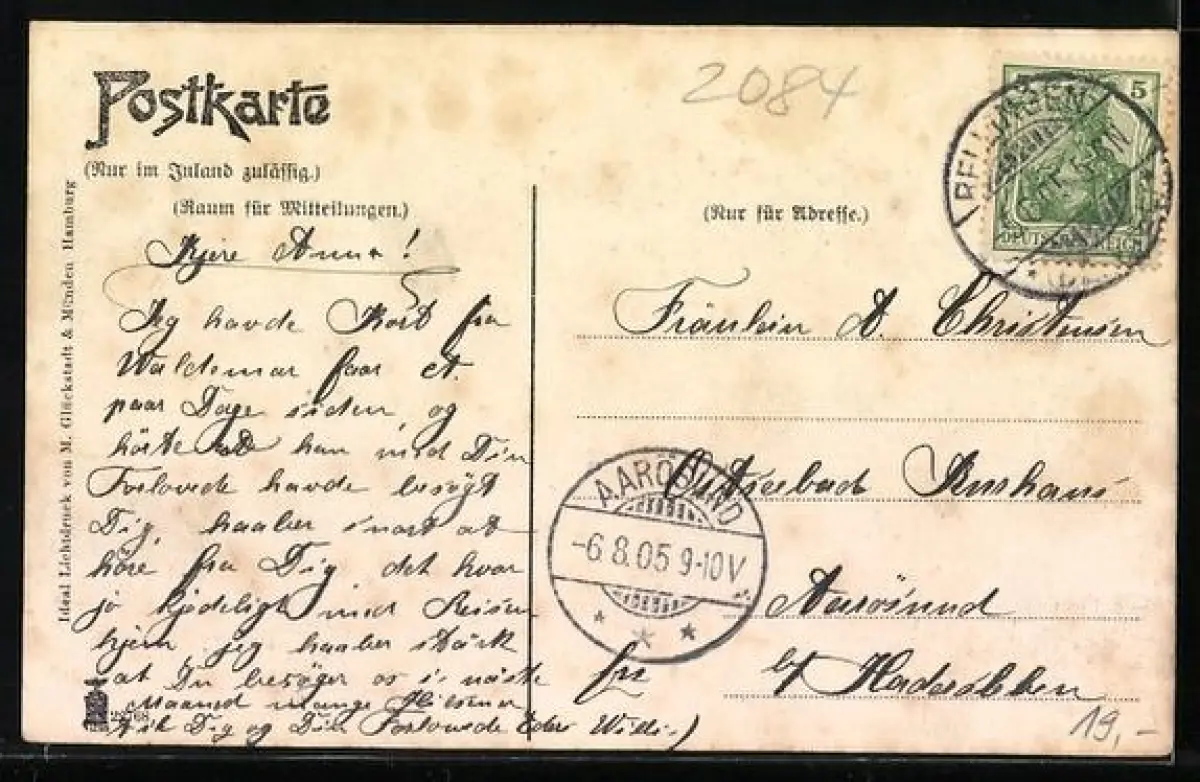 Postkarte
(Nur im Inland zulässig.)
(Raum für Mitteilungen.)
(Nur für Adresse.)
2084
5
DEUTSCHES REICH
Kjere Anna!
Jeg havde Kort fra
Waldemar faar et
paar Dage siden, og
hörte han med Din
Forlovede havde besögt
Dig, haaber snart at
höre fra Dig, det hvar
jo kjedeligt med Reisen
hjem jeg haaber stärk
at Du besöger os i näste
Maaned mange Hilsener
til Dig og Din Forlovede Eders Willi
Fräulein A. Christensen
Ostseebad
Aarösund
b/ Hadersleben
AARÖSUND
-6.8.05 9-10V
19,-
Ideal Lichtdruck von M. Glückstadt & Münden Hamburg